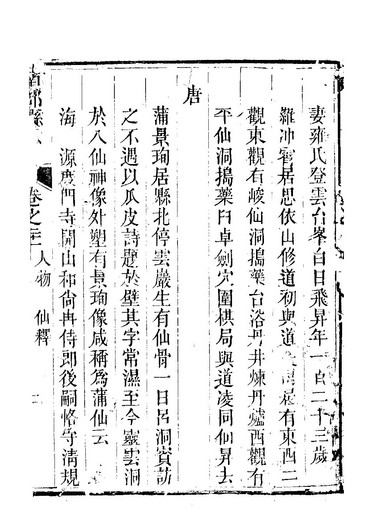 妻雍氏登雲台峯白日飛昇年一百二十三歲
羅冲霄居思依山修道初與道
有東西二
觀東觀有峻仙洞搗藥台浴丹井煉丹爐西觀有
平仙洞搗藥臼卓劍穴圍棋局與道凌同仙昇去
唐
蒲景珣居縣北停雲巖生有仙骨一日呂洞賓訪
之不遇以瓜皮詩題於壁其字常濕至今靈雲洞
於八仙神像外塑有景珣像咸稱為蒲仙云
海源度門寺開山和尚冉侍郎後嗣恪守清規
南部縣
卷之二 人物 仙釋